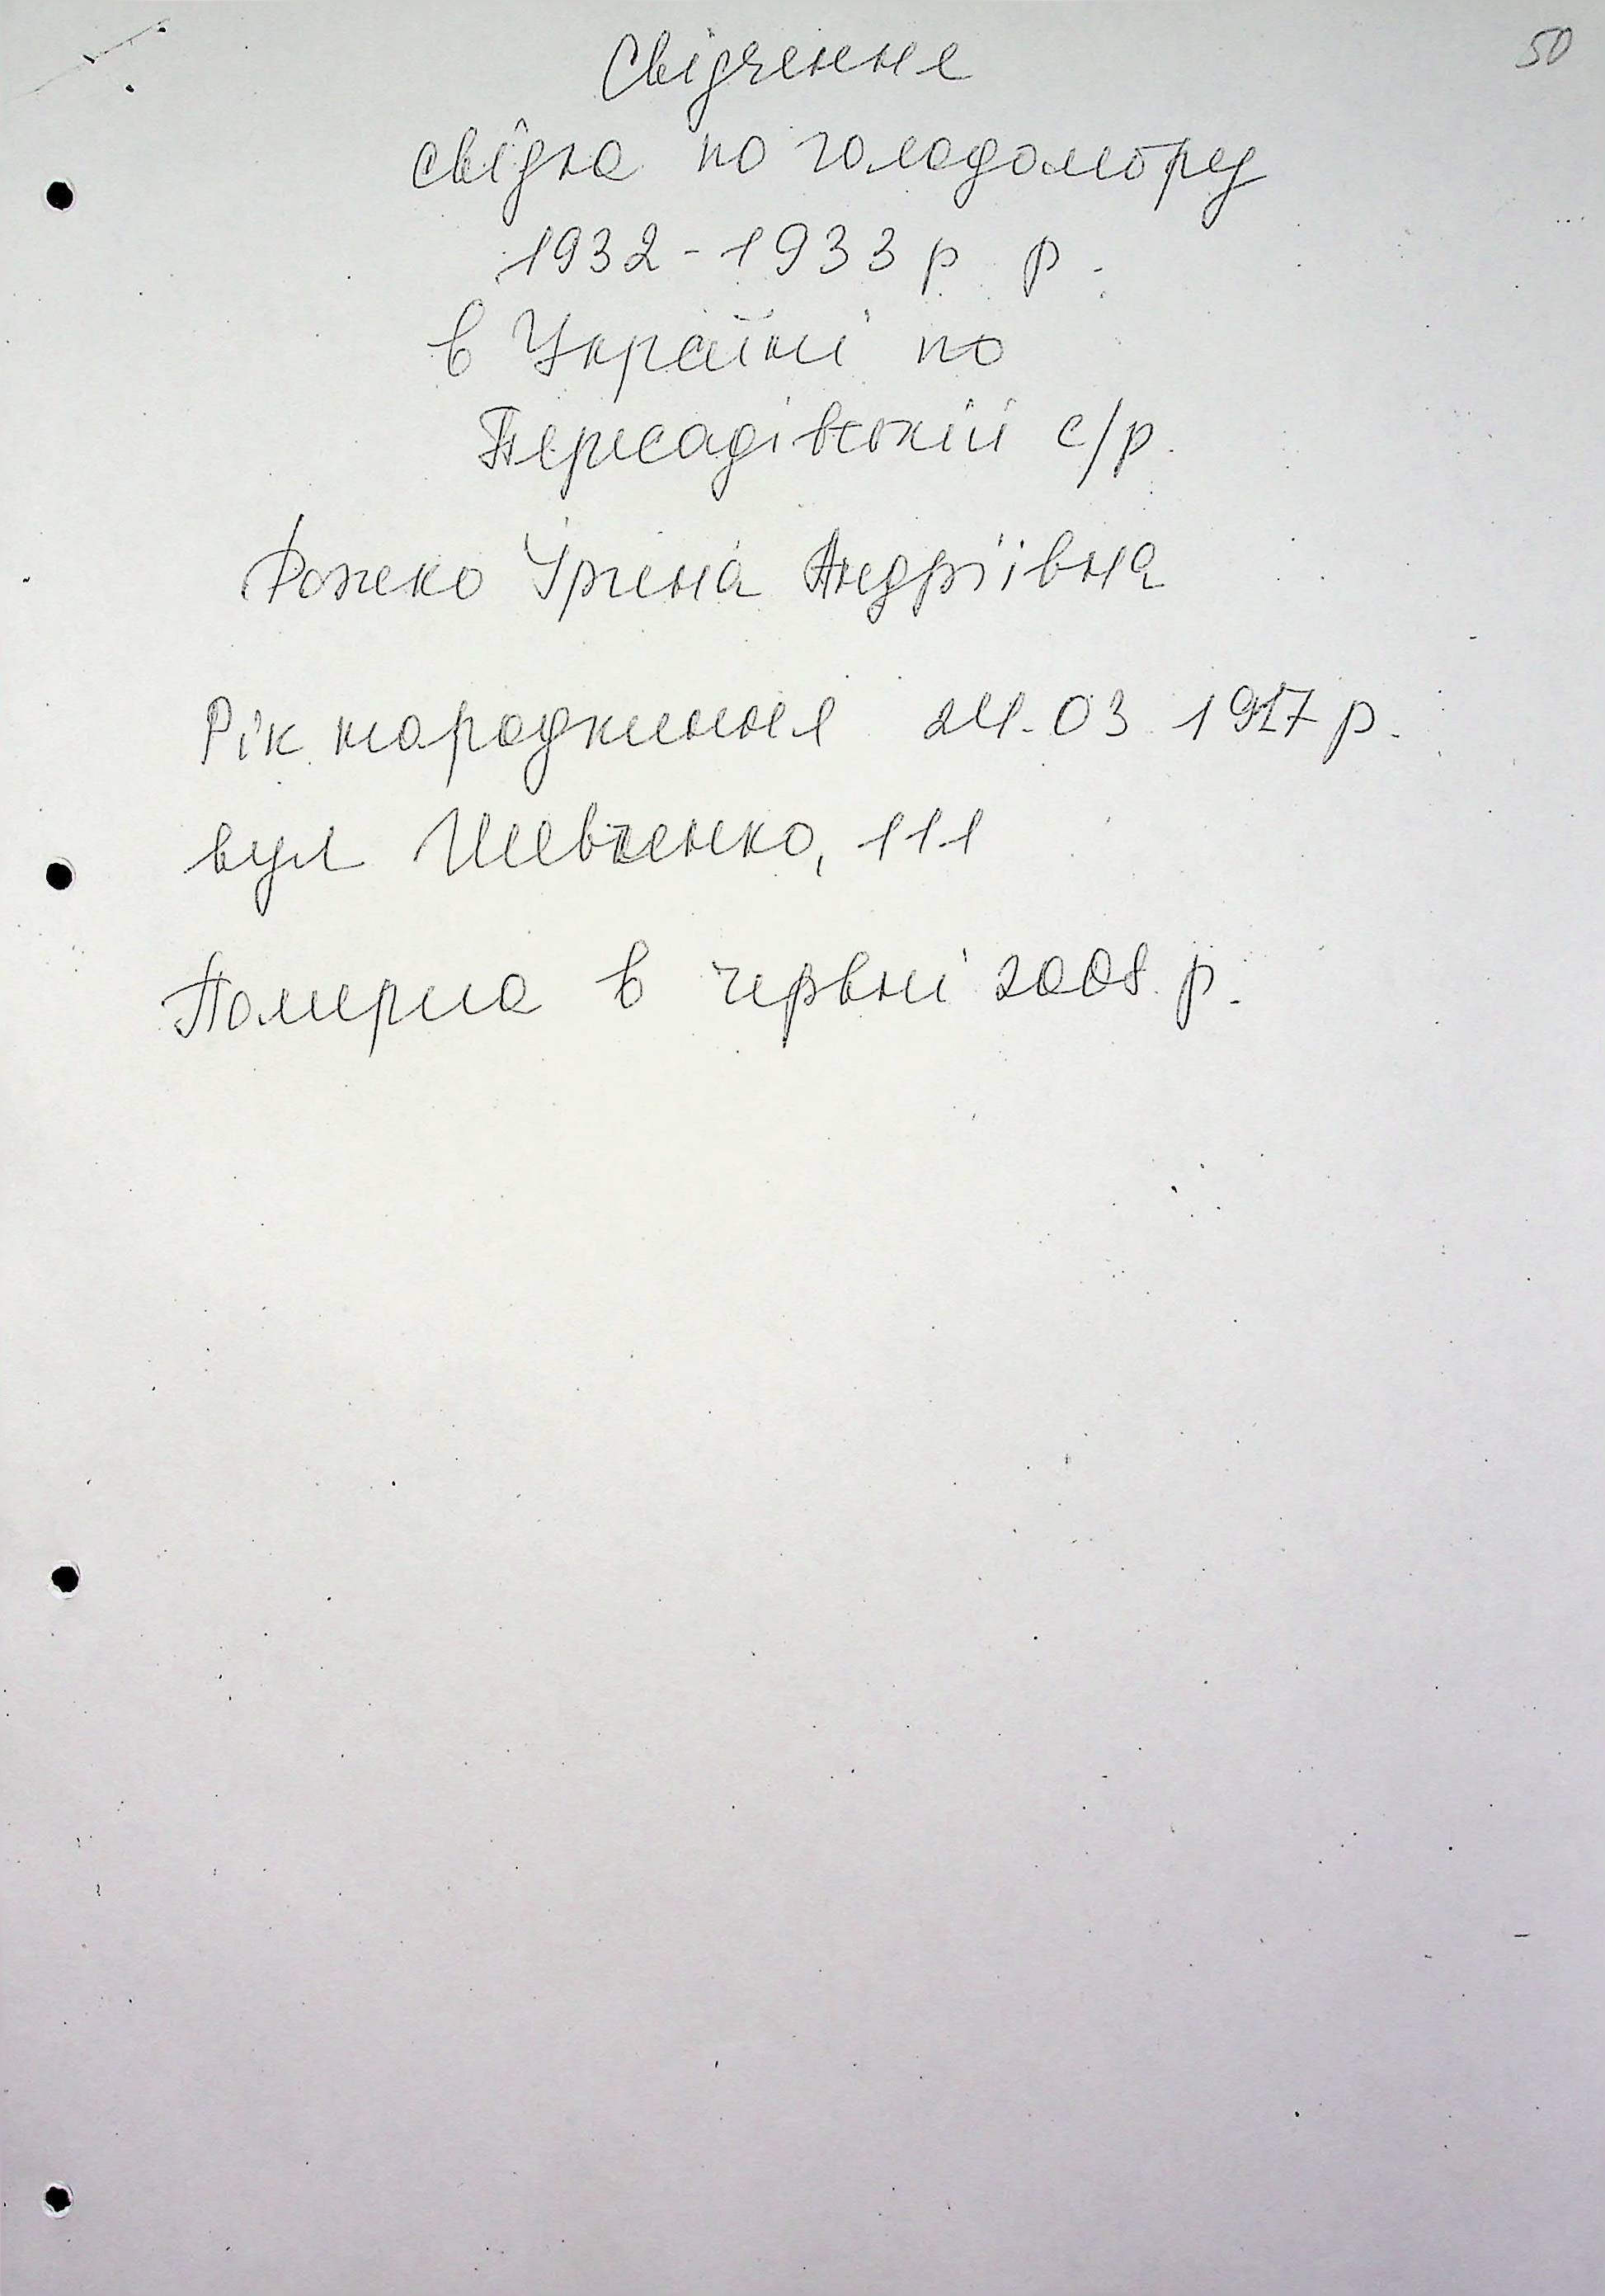 50
Свідчення
свідка по голодомору
1932-1933 р р.
в Україні по
Пересадівській с/р.
Ірина Андріївна
Рік народження 24.03 1917 р.
вул Шевченко, 111
Померла в червні 2008 р.